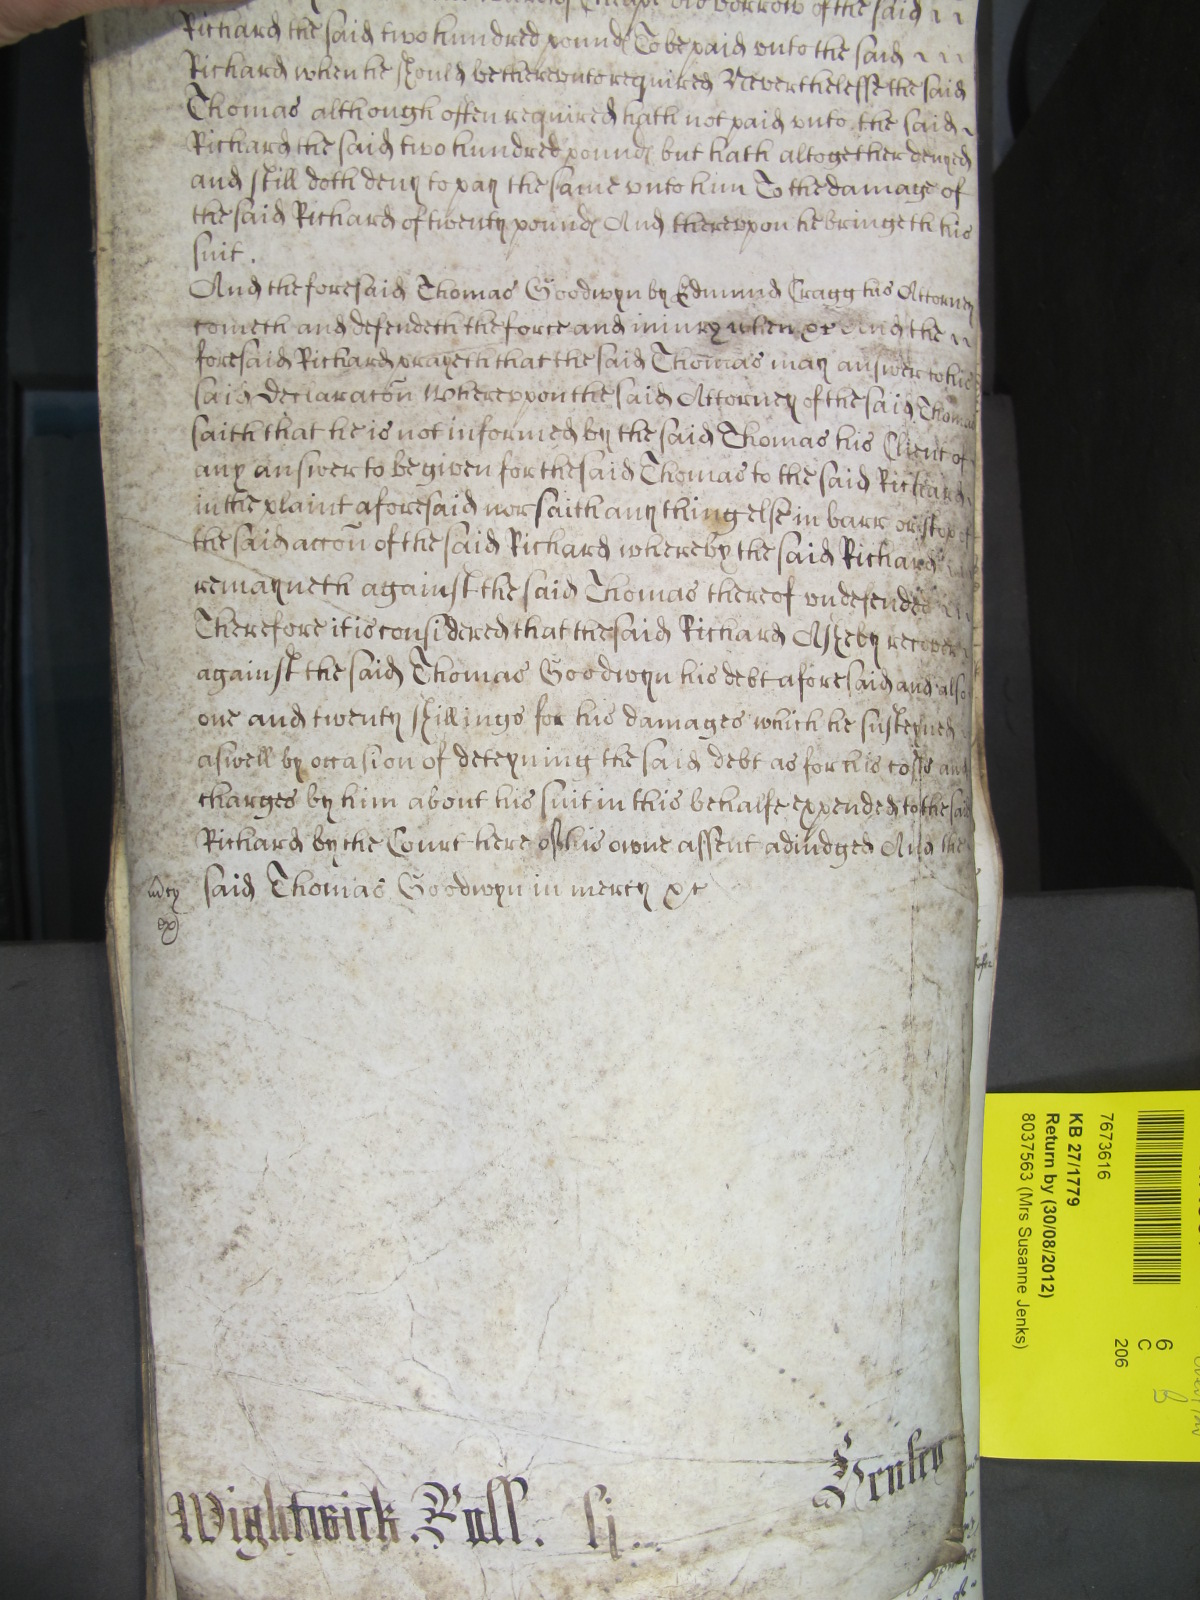 Cheape did borrow of the said
Richard the said two hundred pounds To be paid vnto the said
Richard when he should be therevnto required Neverthelesse the said
Thomas although often required hath not paid vnto the said
Richard the said two hundred pounds but hath altogether denyed
and still doth deny to pay the same vnto him To the damage of
the said Richard of twenty pounds And therevpon he bringeth his
suit.
And the foresaid Thomas Goodwyn by Edmund Cragg his Attorney
cometh and defendeth the force and iniury when &c And the
foresaid Richard prayeth that the said Thomas may answer to his
said Declaracōn Wherevpon the said Attorney of the said Thomas
saith that he is not informed by the said Thomas his Client of
any answer to be given for the said Thomas to the said Richard
in the plaint aforesaid nor saith any thing else in barr or stop of
the said accōn of the said Richard whereby the said Richard
remayneth against the said Thomas thereof vndefended
Therefore it is considered that the said Richard Asheby recover
against the said Thomas Goodwyn his debt aforesaid and also
one and twenty shillings for his damages which he susteyned
aswell by occasion of deteyning the said debt as for his costs and
charges by him about his suit in this behalfe expended to the said
Richard by the Court here of his owne assent adiudged And the
said Thomas Goodwyn in mercy &c
Wightwick. Roll.
Henley
7673616
KB 27/1779
Return by (30/08/2012)
8037563 (Mrs Susanne Jenks)
6
C
206